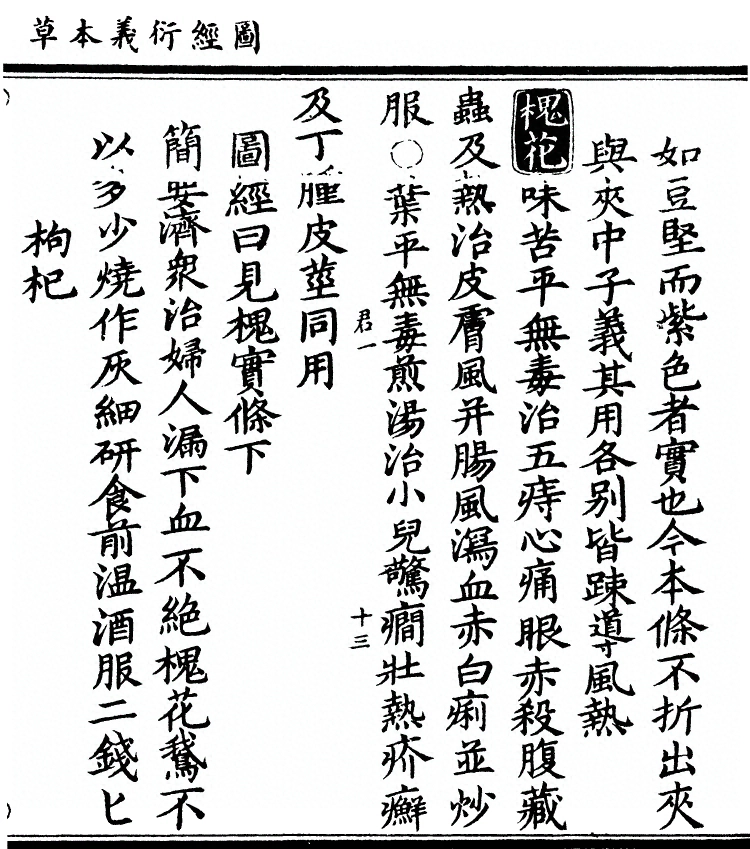 圖經衍義本草
如豆堅而紫色者實也今本條不折出夾
與夾中子義其用各别皆踈導風熱
槐花味苦平無毒治五痔心痛眼赤殺腹藏
蟲及熱治皮膚風并腸風瀉血赤白痢並炒
服〇葉平無毒煎湯治小兒驚癇壯熱疥癬
君一
十三
及丁腫皮莖同用
圖經曰見槐實條下
簡要濟衆治婦人漏下血不絕槐花鵞不
以多少燒作灰細研食前温酒服二錢匕
枸杞